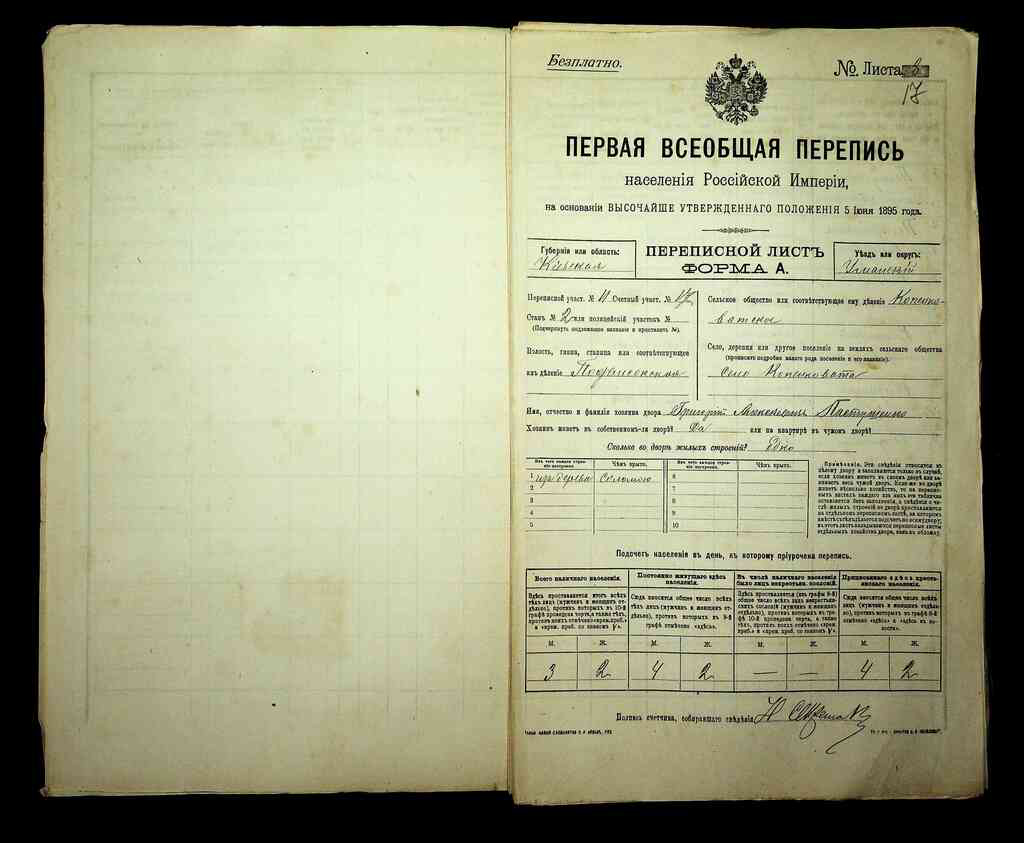 Безплатно.
№ Листа
17
ПЕРВАЯ ВСЕОБЩАЯ ПЕРЕПИСЬ
населенія Россійской Имперіи,
на основаніи ВЫСОЧАЙШЕ УТВЕРЖДЕННАГО ПОЛОЖЕНІЯ 5 Іюня 1895 года.
Губернія или область:
Кіевская
ПЕРЕПИСНОЙ ЛИСТЪ
ФОРМА А.
Уѣздъ или округъ:
Уманьскій
Переписной участ. № 11 Счетный участ. № 17
Станъ № 2 или полицейскій участокъ №
(Подчеркнуть подлежащее названіе и проставить №).
Волость, гмина, станица или соотвѣтствующее
имъ дѣленіе
Сельское общество или соотвѣтствующее ему дѣленіе Копенко-
ватское
Село, деревня или другое поселеніе на земляхъ сельскаго общества
(прописать подробно какого рода поселеніе и его названіе).
Село Копенковата
Имя, отчество и фамилія хозяина двора Григорій
Хозяинъ живетъ въ собственномъ-ли дворѣ? Да или на квартирѣ въ чужомъ дворѣ?
Сколько во дворѣ жилыхъ строеній? Одно
Изъ чего каждое строе-
ніе построено.
Чѣмъ крыто.
Изъ чего каждое строе-
ніе построено.
Чѣмъ крыто.
1 изъ дерева Соломою 6
2 7
3 8
4 9
5 10
Примѣчаніе. Эти свѣдѣнія относятся къ
цѣлому двору и заполняются только въ случаѣ,
если хозяинъ живетъ въ своемъ дворѣ или за-
нимаетъ весь чужой дворъ. Если же во дворѣ
живетъ нѣсколько хозяйствъ, то на перепис-
ныхъ листахъ каждаго изъ нихъ эта табличка
оставляется безъ заполненія, а свѣдѣнія о чи-
слѣ жилыхъ строеній во дворѣ проставляются
на отдѣльномъ переписномъ листѣ, на которомъ
Подсчетъ населенія въ день, къ которому пріурочена перепись.
Всего наличнаго населенія.
Здѣсь проставляется итогъ всѣхъ
тѣхъ лицъ (мужчинъ и женщинъ от-
дѣльно), противъ которыхъ въ 10-й
графѣ проведена черта, а также тѣхъ,
противъ коихъ отмѣчено «врем. преб.»
Постоянно живущаго здѣсь
населенія.
Сюда вносится общее число всѣхъ
тѣхъ лицъ (мужчинъ и женщинъ от-
дѣльно), противъ которыхъ въ 9-й
графѣ отмѣчено «здѣсь».
Въ числѣ наличнаго населенія
было лицъ некрестьян. сословій.
Здѣсь проставляется (изъ графы 8-й)
общее число всѣхъ лицъ некрестьян-
скихъ сословій (мужчинъ и женщинъ
отдѣльно), противъ которыхъ въ гра-
фѣ 10-й проведена черта, а также
тѣхъ, противъ коихъ отмѣчено «врем.
Приписаннаго здѣсь кресть-
янскаго населенія.
Сюда вносится общее число всѣхъ
тѣхъ лицъ (мужчинъ и женщинъ отдѣль-
но), противъ которыхъ въ графѣ 8-й
отмѣчено «здѣсь» и «здѣсь въ во-
лости».
М. Ж. М. Ж. М. Ж. М. Ж.
3 2 4 2 — — 4 2
Подпись счетчика, собиравшаго свѣдѣнія